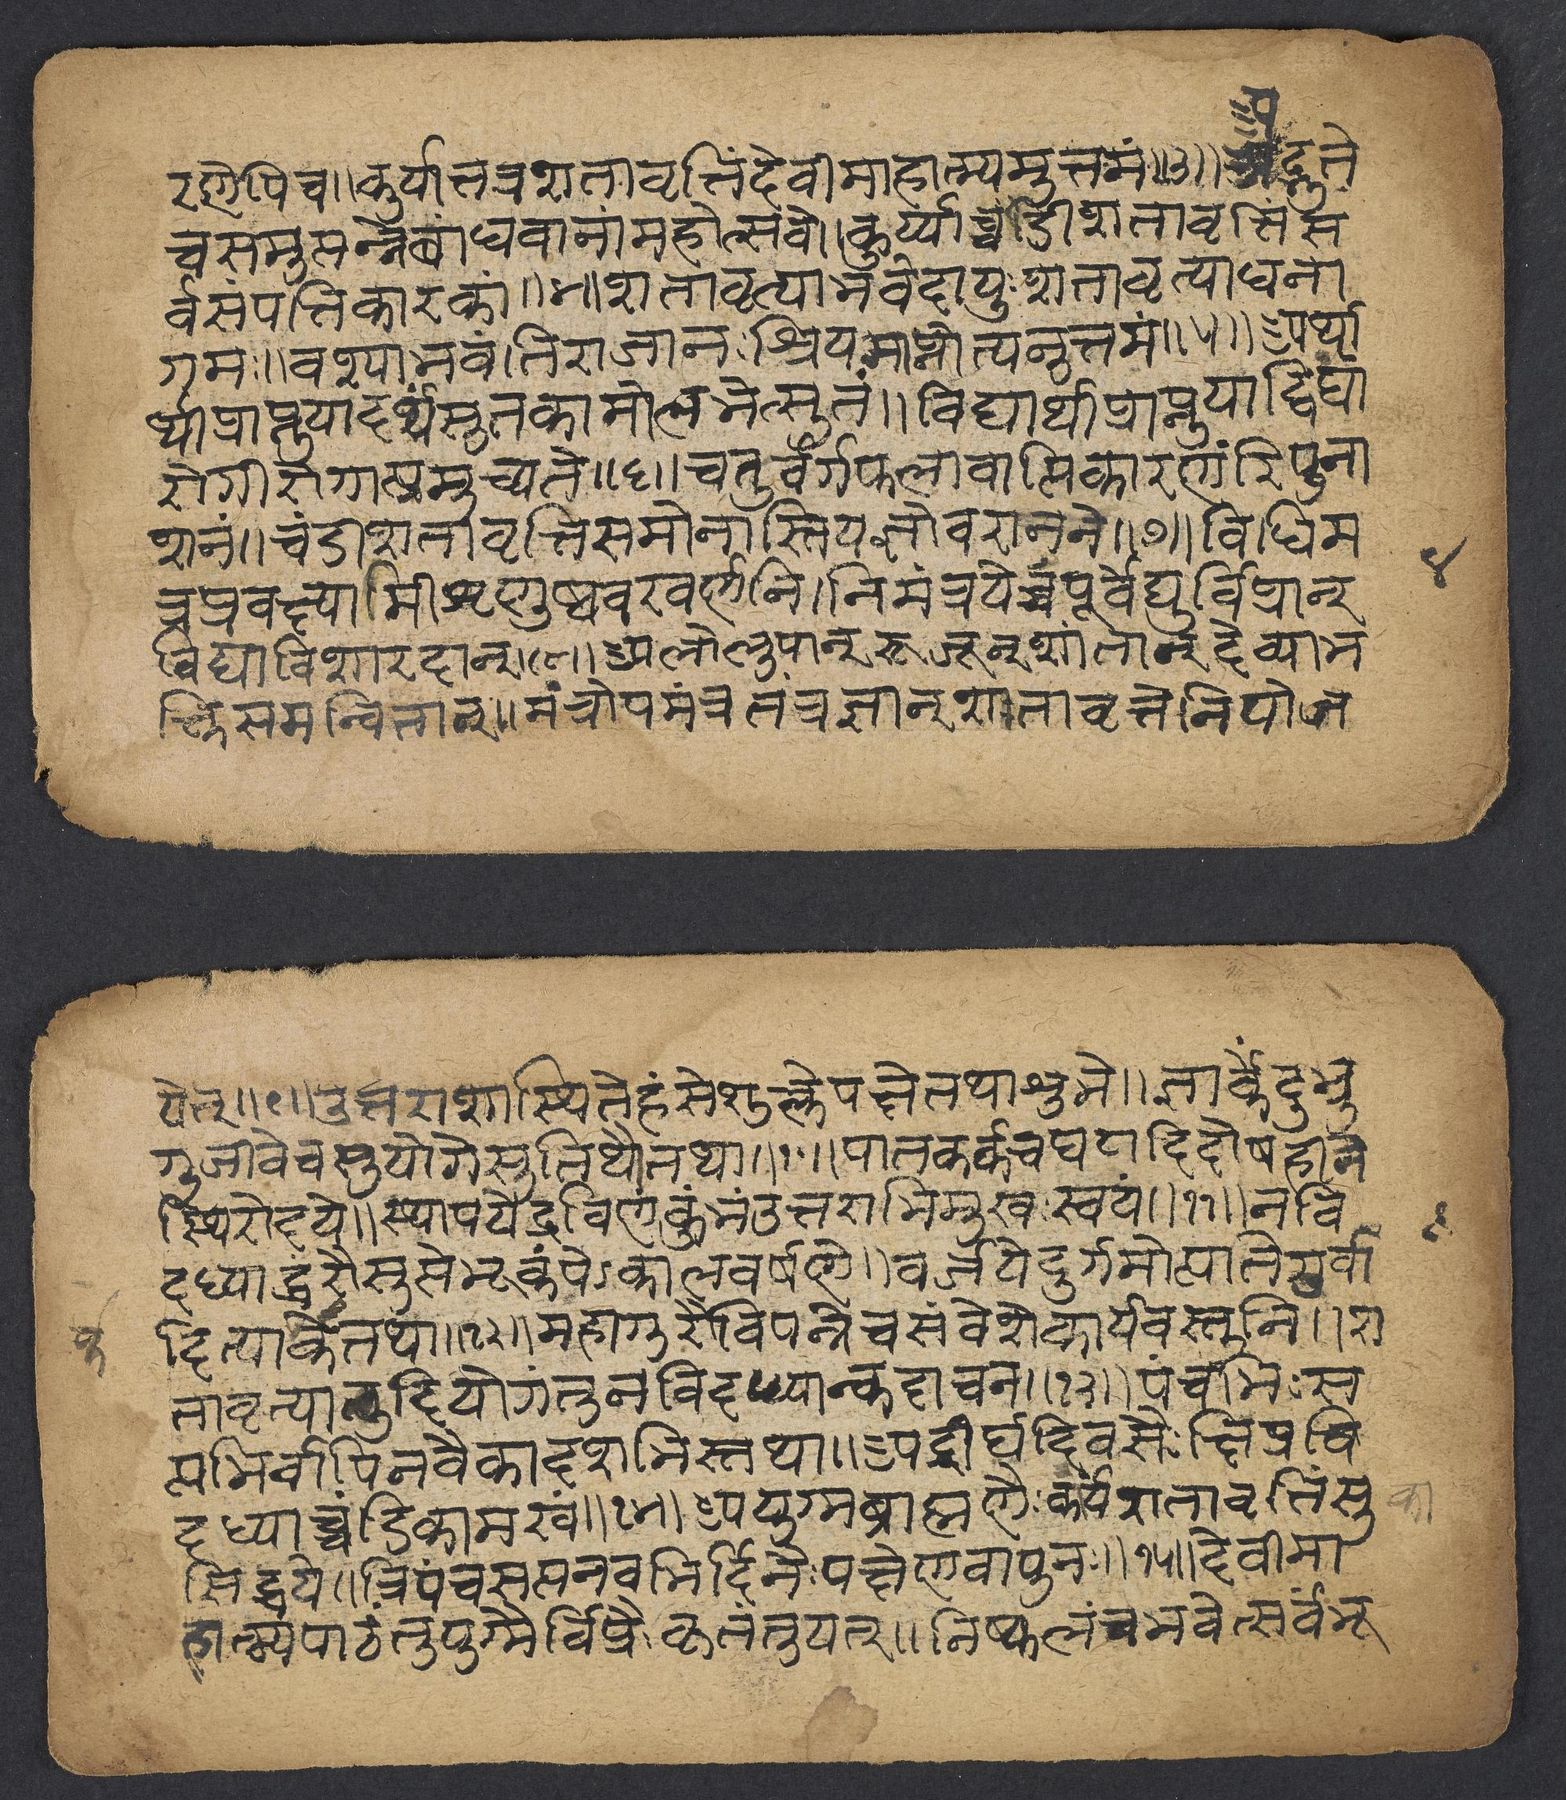 रणेपिच॥कुर्यात्तत्रशतावृत्तिंदेवीमाहात्म्यमुत्तमं॥३॥अद्भुते
चसमुत्पन्नेबांधवानांमहोत्सवे॥कुर्य्याच्चंडीशतावृत्तिंस
र्वसंपत्तिकारकां॥४॥शतावृत्याभवेदायुःशतावृत्याधना
गमः॥वश्याभवंतिराजानःश्रियमाप्नोत्यनुत्तमं॥५॥अर्था
र्थीप्राप्नुयादर्थंसुतकामोलभेत्सुतं॥विद्यार्थीप्राप्नुयाद्विद्यां
रोगीरोगात्प्रमुच्यते॥६॥चतुर्वर्गफलावाप्तिकारणंरिपुना
शनं॥चंडीशतावृत्तिसमोनास्तियज्ञोवरानने॥७॥विधिम
त्रप्रवक्ष्यामिशृणुष्ववरवर्णिनि।निमंत्रयेच्चपूर्वेद्युर्विप्रान्
विद्याविशारदान्।८॥अलोलुपान्रूजून्शांतान्देव्याभ
क्तिसमन्वितान्॥मंत्रोपमंत्रतंत्रज्ञान्शतावृत्तेनियोज
४
येत्॥९॥उत्तराशास्थितेहंसेशुक्लेपक्षेतथाशुभे॥ज्ञार्केंदुभृ
गुजीवेचसुयोगेसुतिथौतथा॥१०॥पातकर्कचघटादिदोषहीने
स्थिरोदये॥स्थापयेद्रविणंकुंभंउत्तराभिमुखःस्वयं॥११॥नवि
दध्याद्गुरौसुप्तेभूकंपेऽकालवर्षणे॥वर्जयेदुर्गमोत्पातेगुर्वा
दित्यार्केतथा॥१२॥महागुरौविपन्नेचसंवेशेकार्यवस्तुनि॥श
तावृत्यातुदियोगंतुनविदध्यान्कदाचन॥१३॥पंचभिःस
प्तभिर्वापिनवैकादशभिस्तथा॥अदीर्घदिवसैःक्षिप्रंवि
दध्याच्चंडिकामखं॥१४॥अयुग्मब्राह्मणैःकार्यशतावृत्तिंसु
सिद्धये॥त्रिपंचसप्तनवभिर्दिनैःपक्षेणवापुनः॥१५॥देवीमा
हात्म्यपाठंतुयुग्मैर्विप्रैःकृतंतुयत्॥निष्फलंचभवेत्सर्वंभू
का